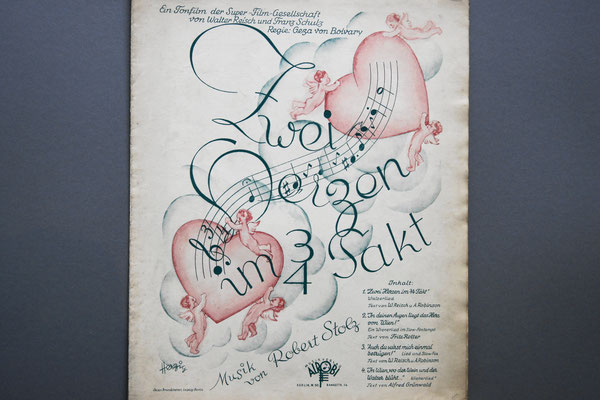 Ein Tonfilm der Super-Film-Gesellschaft
von Walter Reisch und Franz Schulz
Regie: Geza von Bolvary
Zwei
Herzen
im 3/4 Takt
Musik
von Robert Stolz
Inhalt:
1. "Zwei Herzen im 3/4 Takt"
Walzerlied
Text von W. Reisch u. A. Robinson
2. "In deinen Augen liegt das Herz
von Wien!"
Ein Wienerlied im Slow-Foxtempo
Text von Fritz Rotter
3. "Auch du wirst mich einmal
betrügen!" Lied und Slow-Fox
Text von W. Reisch u. A. Robinson
4. "In Wien, wo der Wein und der
Walzer blüht..." Wienerlied
Text von Alfred Grünwald
ALROBI
BERLIN W. 50